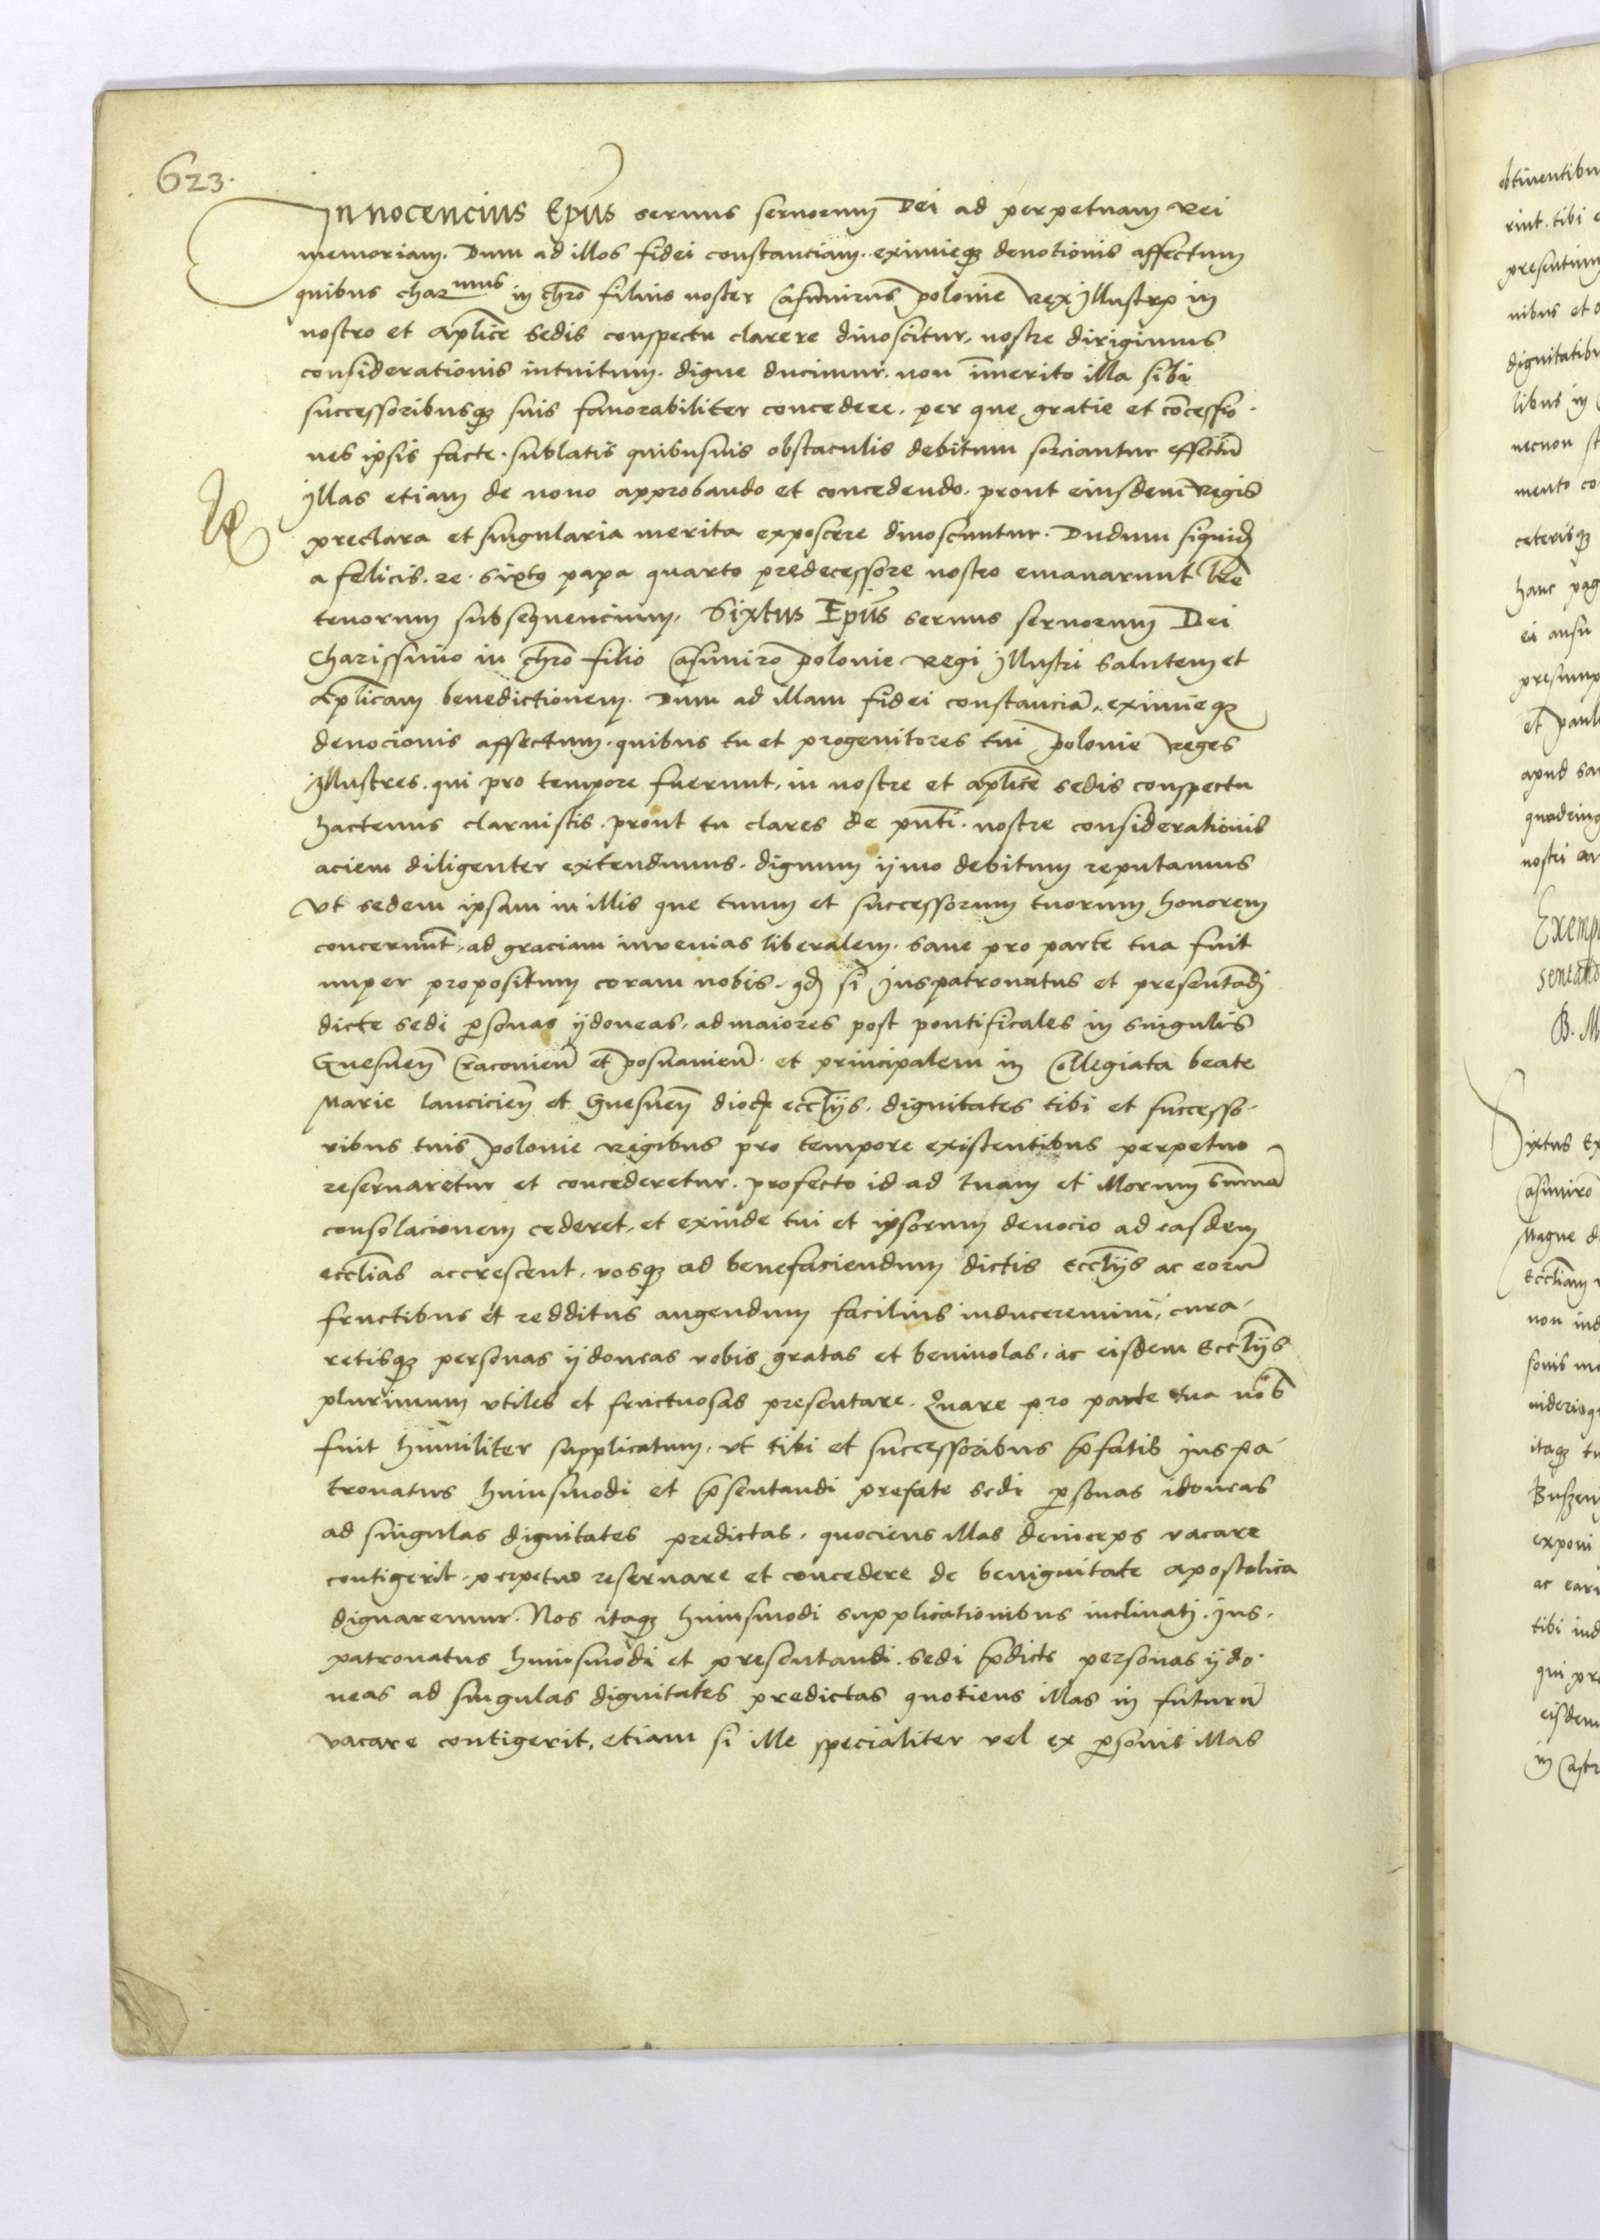 623.
Innocencius Epus servus servorum Dei ad perpetuam Rei
memoriam. Dum ad illos fidei constanciam. eximieq3 devotionis affectum
quibus charmus in chro filius noster Casimirus polonie Rex illustris in
nostro et aplice sedis conspectu clarere dinoscitur, nostre dirigimus
considerationis intuitum. digne ducimur. non imerito illa sibi
successoribusq3 suis favorabiliter concedere. per que gratie et cocessio-
nes ipsis facte. sublatis quibusvis obstaculis debitum sorciantur effectu
illas etiam de novo approbando et concedendo. prout eiusdem Regis
preclara et singularia merita exposcere dinoscuntur. Dudum siquid
a felicis. re. Sixto papa quarto predecessore nostro emanarunt lre
tenorum subsequencium, Sixtus Epus servus servorum Dei
Charissimo in chro filio Casimiro polonie Regi illustri salutem et
Aplicam benedictionem. Dum ad illam fidei constancia. eximieq3
devocionis affectum. quibus tu et progenitores tui polonie Reges
illustres. qui pro tempore fuerunt, in nostre et aplice sedis conspectu
hactenus claruistis. prout tu clares de pnti. nostre considerationis
aciem diligenter extendimus. dignum ijmo debitum reputamus
Ut sedem ipsam in illis que tuum et successorum tuorum honorem
concernunt, ad graciam invenias liberalem. Sane pro parte tua fuit
nuper propositum coram nobis. qd si iuspatronatus et presentadi
dicte sedi psonas ydoneas, ad maiores post pontificales in singulis
Gnesnen Cracovien et posnanien. et principalem in Collegiata beate
Marie lancicien et Gnesnen dioc ecclijs. dignitates tibi et successo-
ribus tuis polonie Regibus pro tempore existentibus perpetuo
reservaretur et concederetur. profecto id ad tuam et illorum suma
consolacionem cederet, et exinde tui et ipsorum devocio ad easdem
ecclias accrescent, vosq3 ad benefaciendum dictis Ecclijs ac eoru
fructibus et redditus augendum facilius induceremini, cura-
retisq3 personas ydoneas vobis gratas et benivolas, ac eisdem Ecclijs
plurimum utiles et fructuosas presentare. Quare pro parte tua nob
fuit humiliter supplicatum, ut tibi et successoribus pfatis ius pa
tronatus huiusmodi et psentandi prefate sedi psonas idoneas
ad singulas dignitates predictas, quociens illas deinceps vacare
contigerit, perpetuo reservare et concedere de benignitate apostolica
dignaremur. Nos itaq3 huiusmodi supplicationibus inclinati. ius-
patronatus huiusmodi et presentandi. sedi pdicte personas ydo-
neas ad singulas dignitates predictas quotiens illas in futuru
vacare contigerit, etiam si ille specialiter vel ex psonis illas